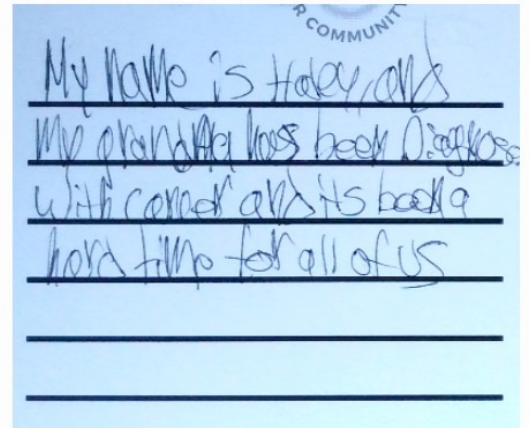 R COMMUNIT
My name is Haley, and
My grandma has been Diagnose
with cancer and its been a
hard time for all of us